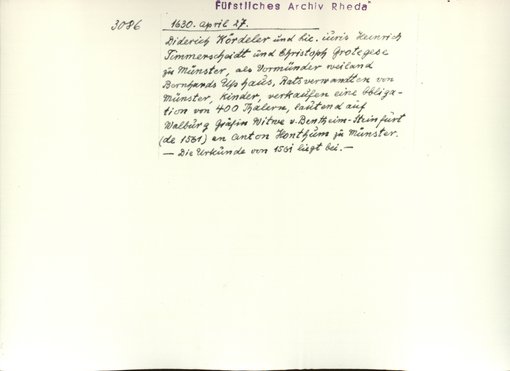 Fürstliches Archiv Rheda
3086 1630. April 27.
Diderich Kördeler und Lic. iuris Heinrich
Timmerscheidt und Christoph Grotegese
zu Münster, als Vormünder weiland
Bernhards Ufs haus, Ratsverwandten von
Münster, Kinder, verkaufen eine Obliga-
tion von 400 Thalern, lautend auf
Walburg Gräfin Witwe v. Bentheim-Steinfurt
(de 1581) an Anton Honthum zu Münster.
— Die Urkunde von 1581 liegt bei. —